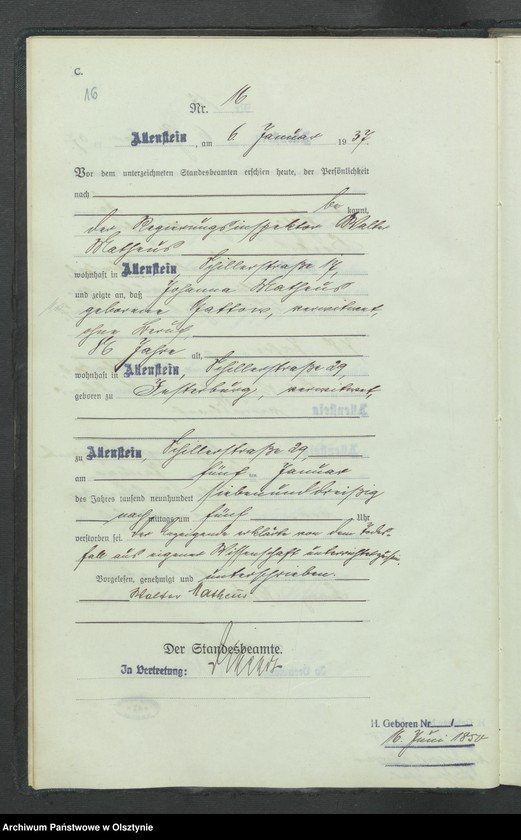 C.
16
Nr. 16
Allenstein, am 6. Januar 1937.
Vor dem unterzeichneten Standesbeamten erschien heute, der Persönlichkeit
nach
be kannt,
der Regierungsinspektor Walter
Matheus
wohnhaft in Allenstein, Schillerstraße 17,
und zeigte an, daß Johanna Matheus
geborene Gattow, verwitwet,
ohne Beruf,
86 Jahre alt,
wohnhaft in Allenstein, Schillerstraße 29
geboren zu Insterburg, verwitwet,
zu Allenstein, Schillerstraße 29,
am fünf ten Januar
des Jahres tausend neunhundert siebenunddreißig
nach mittags um fünf Uhr
verstorben sei. Der Anzeigende erklärte von dem Todes-
fall aus eigener Wissenschaft unterrichtet zu sein.
Vorgelesen, genehmigt und unterschrieben.
Walter Matheus
Der Standesbeamte.
In Vertretung:
H. Geboren Nr. 1
16. Juni 1850
Archiwum Państwowe w Olsztynie